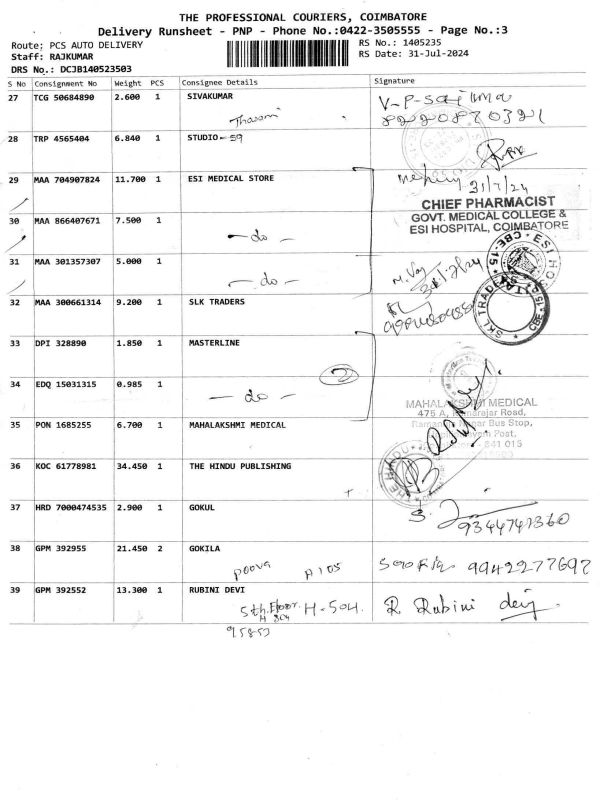 THE PROFESSIONAL COURIERS, COIMBATORE
Delivery Runsheet - PNP - Phone No.:0422-3505555 - Page No.:3
Route; PCS AUTO DELIVERY
RS No.: 1405235
Staff: RAJKUMAR
RS Date: 31-Jul-2024
DRS No.: DCJB140523503
S No Consignment No Weight PCS Consignee Details Signature
27 TCG 50684890 2.600 1 SIVAKUMAR
8220870321
28 TRP 4565404 6.840 1 STUDIO-59
31/7/24
29 MAA 704907824 11.700 1 ESI MEDICAL STORE
CHIEF PHARMACIST
GOVT. MEDICAL COLLEGE &
ESI HOSPITAL, COIMBATORE
30 MAA 866407671 7.500 1
- do -
31 MAA 301357307 5.000 1
- do -
32 MAA 300661314 9.200 1 SLK TRADERS
SKL TRADERS
33 DPI 328890 1.850 1 MASTERLINE
2
34 EDQ 15031315 0.985 1
- do -
MAHALAKSHMI MEDICAL
475 A, Ramarajar Road,
Bus Stop,
Post,
641 015
35 PON 1685255 6.700 1 MAHALAKSHMI MEDICAL
36 KOC 61778981 34.450 1 THE HINDU PUBLISHING
THE HINDU
37 HRD 7000474535 2.900 1 GOKUL
9344741360
38 GPM 392955 21.450 2 GOKILA
poova A105
9942277697
39 GPM 392552 13.300 1 RUBINI DEVI
5th Floor H-504.
R Rubini devi
95853